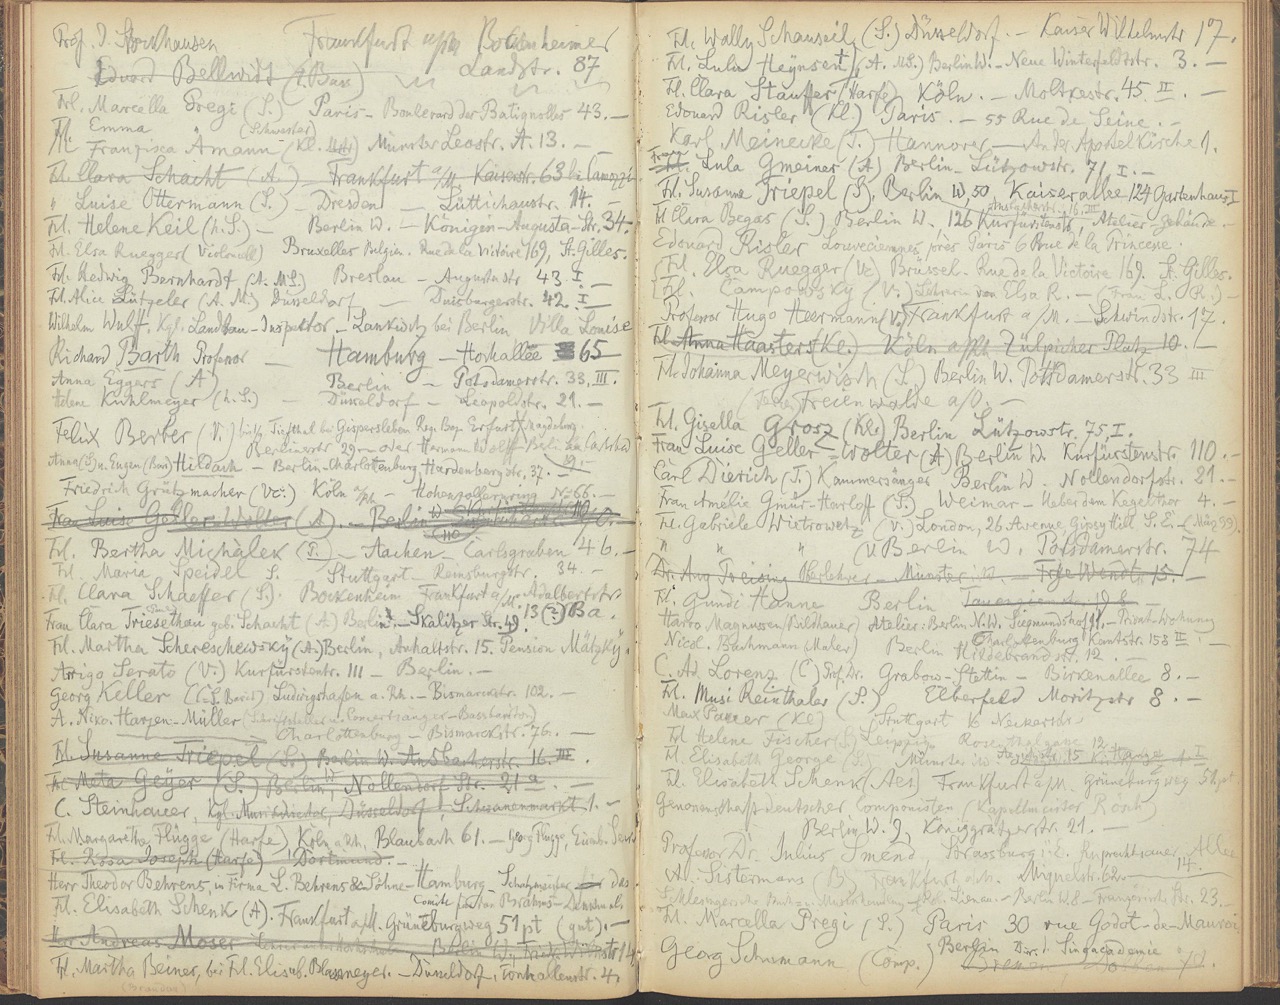 Prof. J. Stockhausen Frankfurt a/M Bockenheimer
Landstr. 87
Eduard Bellwidt (Bass)
Frl. Marcella Pregi (S.) Paris - Boulevard des Batignolles 43. -
Frl. Emma
Franzisca Amann (Kl. (Schwester) Münster Leostr. A. 13. -
Frl. Clara Schacht (A.) - Frankfurt a/M - Kaiserstr. 63 bei
" Luise Ottermann (S.) - Dresden - Lüttichaustr. 14. -
Frl. Helene Keil (h.S.) - Berlin W. - Königin-Augusta-Str. 34.
Frl. Elsa Ruegger (Violoncell) Bruxelles Belgien. Rue de la Victoire 169, St. Gilles.
Frl. Hedwig Bernhardt (A. MS.) Breslau - Augustastr 43 I. -
Frl. Alice Lützeler (A. M.) Düsseldorf - Duisburgerstr. 42. I -
Wilhelm Wulff. Kgl. Landbau-Inspektor - Lankwitz bei Berlin Villa Louise
Richard Barth Professor - Hamburg - Hochallee 65
Anna Eggers (A) Berlin - Potsdamerstr. 33, III. -
Helene Kuhlmeyer (h.S.) - Düsseldorf - Leopoldstr. 21. -
Felix Berber (V.) Tiefthal bei Gispersleben Reg. Bez. Erfurt (Magdeburg.
Berlinerstr 29 - oder Hermann Wolff - Berlin am Carlsbad
Anna (S.) u. Eugen (Bar.) Hildach - Berlin-Charlottenburg, Hardenbergstr. 37. -
Friedrich Grützmacher (Vc.) Köln a/Rh - Hohenzollernring No 66. -
Frau Luise Geller-Wolter (A). - Berlin W 110. -
Frl. Bertha Michalek (P.) - Aachen - Carlsgraben 46. -
Frl. Maria Speidel S. Stuttgart - Reinsburgstr. 34. -
Frl. Clara Schaeffer (S.) Bockenheim Frankfurt a/M. Adalbertstr.
13 (?) Ba.
Frau Clara Triesethau geb. Schacht (A) Berlin - Skalitzer Str. 49.
Frl. Martha Schereschewsky (A.) Berlin, Anhaltstr. 15. Pension Mätzky.
Arrigo Serato (V.) Kurfürstenstr. 111 - Berlin. -
Georg Keller Ludwigshafen a. Rh. - Bismarckstr. 102. -
A. Niko. Harzen-Müller (Schriftsteller u. Concertsänger - Bassbariton)
Charlottenburg - Bismarckstr. 76. -
Frl. Susanne Triepel (S.) Berlin W. Ansbacherstr. 16. III. -
Frl. Meta Geyer (S.) Berlin, W Nollendorf Str. 21a. -
C. Steinhauer, Kgl. Musikdirector, Düsseldorf, Schwanenmarkt 1. -
Frl. Margaretha Flügge (Harfe) Köln a/Rh. Blaubach 61. - Georg Flügge,
Frl. Rosa Joseph (Harfe) Dortmund. -
Herr Theodor Behrens, in Firma L. Behrens & Söhne - Hamburg - Schatzmeister für das
Comité für das Brahms-Denkmal
Frl. Elisabeth Schenk (A). Frankfurt a/M. Grüneburgweg 51 pt (gut). -
Herr Andreas Moser - Berlin W.
Frl. Martha Beines, bei Frl. Elisab. Blasneyer. - Düsseldorf, Tonhallenstr. 4.
Frl. Wally Schauseil (S.) Düsseldorf. - Kaiser Wilhelmstr 17.
Frl. Lula Heynsen (A. MS.) Berlin W. - Neue Winterfeldtstr. 3. -
Frl. Clara Stauffer (Harfe) Köln. - Moltkestr. 45 II. -
Edouard Risler (Kl.) Paris. - 55 Rue de Seine. -
Karl Meinecke (T.) Hannover - An der Apostelkirche 1.
Frau Lula Gmeiner (A) Berlin - Lützowstr. 71 I. -
Frl. Susanne Triepel (S). Berlin W, 50, Kaiserallee 124 Gartenhaus I
Frl. Clara Begas (S.) Berlin W. 126 Kurfürstenstr, Atelier-gebäude. -
Edouard Risler Louveciennes près Paris 6 Rue de la Princesse.
Frl. Elsa Ruegger (Vc) Brüssel - Rue de la Victoire 169. St. Gilles.
Frl. Campowsky (V.) Lehrerin von Elsa R. -
Professor Hugo Heermann (V.) Frankfurt a/M. - Schwindstr. 17.
Frl. Anna Haasters (Kl.) Köln a/Rh Zülpicher Platz 10. -
Frl. Johanna Meyerwisch (S.) Berlin W. Potsdamerstr. 33 III
Freienwalde a/O. -
Frl. Gisella Grosz (Kl.) Berlin Lützowstr. 75, I. -
Frau Luise Geller-Wolter (A) Berlin W. Kurfürstenstr 110. -
Carl Dierich (T.) Kammersänger Berlin W. Nollendorfstr. 21. -
Frau Amélie Gmür-Harloff (S.) Weimar - Ueber dem Kegeltor 4. -
Frl. Gabriele Wietrowetz (V.) London, 26 Avenue Gipsy Hill S.E. - (März 99).
" " " u Berlin W. Potsdamerstr. 74
Dr. Aug Preising Oberlehrer - Münster i/W. - 15. -
Frl. Gundi Hanne Berlin Tauenzienstr.
Harro Magnussen (Bildhauer) Atelier: Berlin N.W. Siegmundshof 11, - Privat-Wohnung
Charlottenburg Kantstr. 158 II.
Nicol. Bachmann (Maler) Berlin Hildebrandstr. 12. -
C. Ad. Lorenz (C) Prof. Dr. Grabow-Stettin - Birkenallee 8. -
Frl. Musi Reinthaler (S.) Elberfeld Moritzstr 8. -
Max Pauer (Kl) Stuttgart 16 Neckarstr.
Frl. Helene Fischer Leipzig Rosenthalgasse 12
Frl. Elisabeth George (S.) Münster i/W Aegidiistr. 15
Frl. Elisabeth Schenk (Alt) Frankfurt a/M. Grüneburgweg 51 pt
Genossenschaft deutscher Componisten (Kapellmeister Rösch)
Berlin W. 9, Königgrätzerstr. 21. -
Professor Dr. Julius Smend Strassburg i. E. Ruprechtsauer Allee
14.
Al. Sistermans (B) Frankfurt a/M. 62. -
Schlesingersche Buch- u. Musikhandlung Rob. Lienau. - Berlin W. 8 - Französische Str. 23. -
Frl. Marcella Pregi (S.) Paris 30 rue Godot-de-Mauroi
Georg Schumann (Comp.) Berlin Dir. d. Singacademie